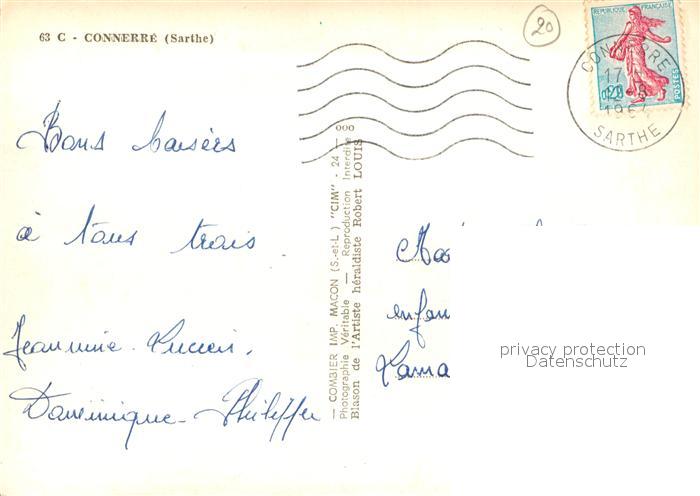 63 C - CONNERRÉ (Sarthe)
20
REPUBLIQUE FRANÇAISE
0,20
POSTES
CONNERRE
17
1964
SARTHE
Bons baisers
à tous trois
Jeannine. Lucien.
Dominique. Philippe
— COMBIER IMP. MACON (S.-et-L.) "CIM" - 24 — 000
Photographie Véritable — Reproduction Interdite
Blason de l'Artiste héraldiste Robert LOUIS
enfan
Lama
privacy protection
Datenschutz